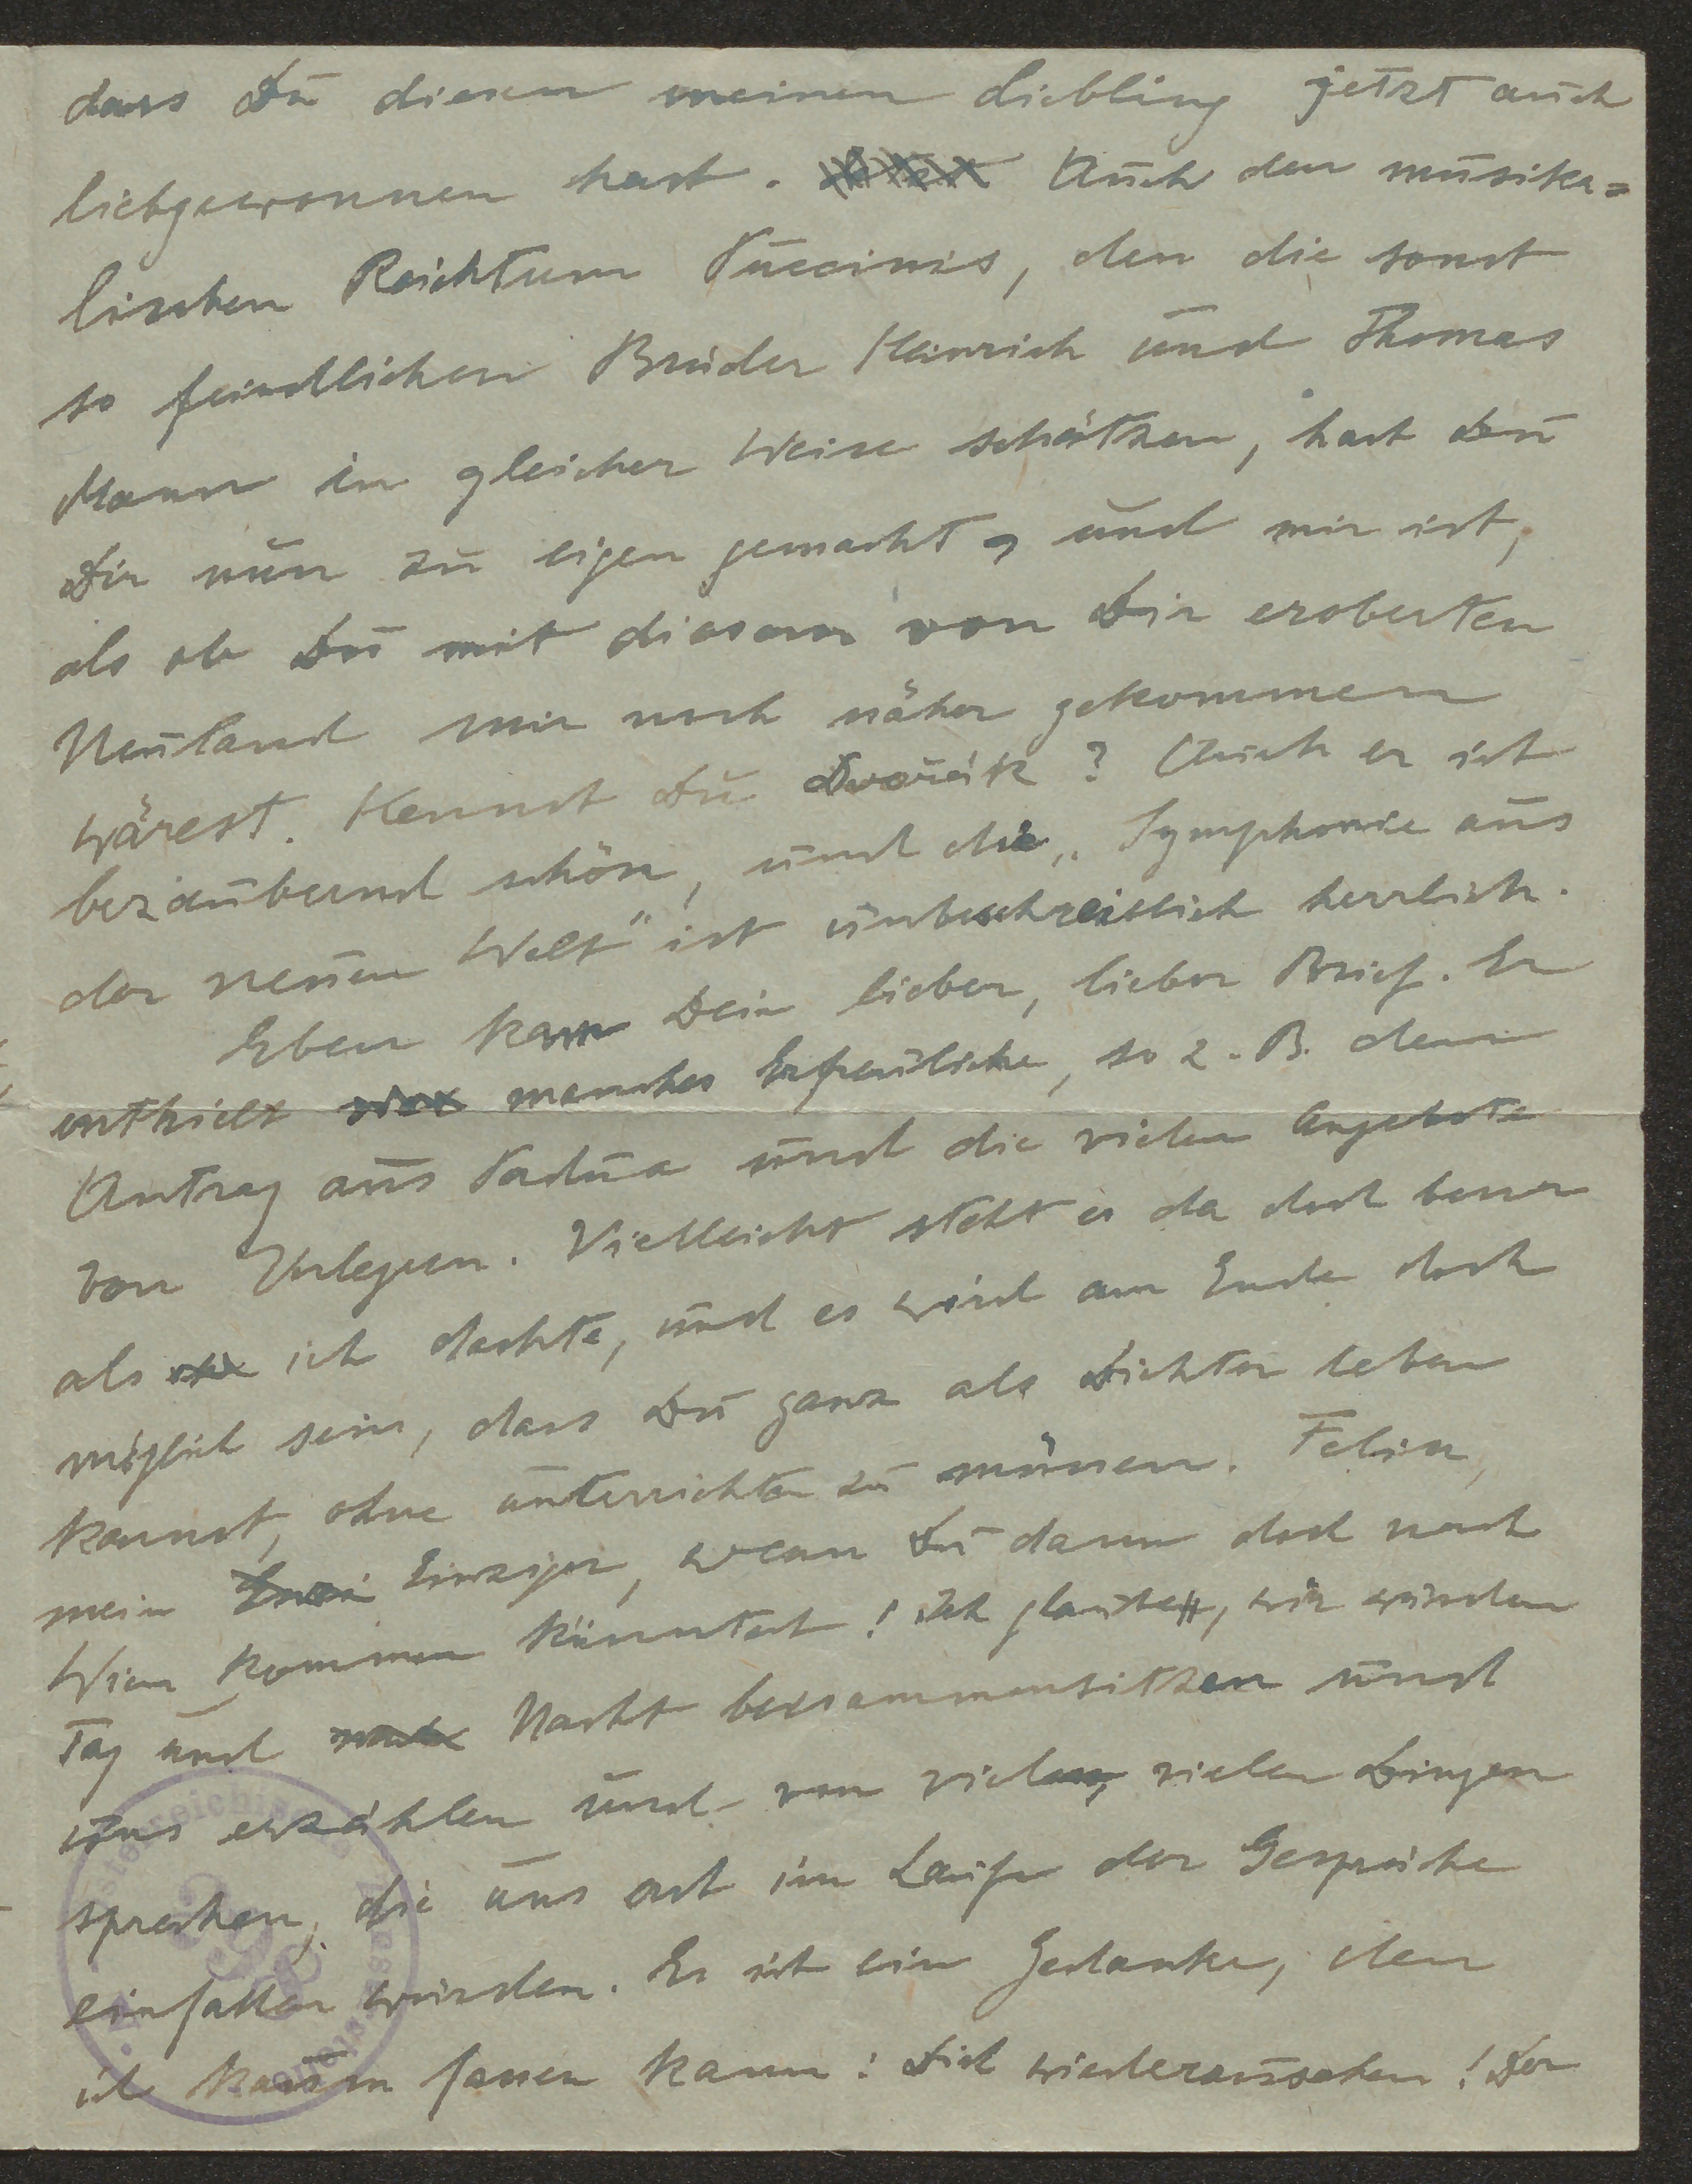 dass Du diesen meinen Liebling jetzt auch
liebgewonnen hast. Auch den musika=
lischen Reichtum Puccinis, den die sonst
so feindlichen Brüder Heinrich und Thomas
Mann in gleicher Weise schätzen, hast Du
Dir nun zu eigen gemacht, und mir ist,
als ob Du mit diesem von Dir eroberten
Neuland mir noch näher gekommen
wärest. Kennst Du Dvořák? Auch er ist
bezaubernd schön, und die „Symphonie aus
der neuen Welt" ist unbeschreiblich herrlich.
Eben kam Dein lieber, lieber Brief. Er
enthielt manches Erfreuliche, so z. B. den
Antrag aus Padua und die vielen Angebote
von Verlegern. Vielleicht steht es da doch besser
als ich dachte, und es wird am Ende doch
möglich sein, dass Du ganz als Dichter leben
kannst, ohne unterrichten zu müssen. Felix,
mein Einziger, wenn Du dann doch nach
Wien kommen könntest! Ich glaube, wir würden
Tag und Nacht beisammensitzen und
uns erzählen und von vielen, vielen Dingen
sprechen, die uns erst im Laufe der Gespräche
einfallen würden. Es ist ein Gedanke, den
ich kaum fassen kann: Dich wiederzusehen! Der
Österreichische Zensurstelle
398